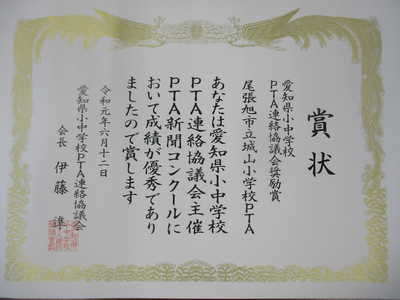 賞状
愛知県小中学校
PTA連絡協議会奨励賞
尾張旭市立城山小学校PTA
あなたは愛知県小中学校
PTA連絡協議会主催
PTA新聞コンクールに
おいて成績が優秀であり
ましたので賞します
令和元年六月十二日
愛知県小中学校PTA連絡協議会
会長 伊藤 準